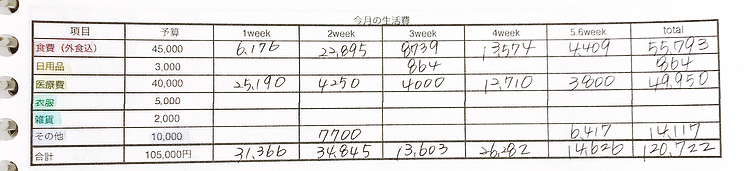 今月の生活費
項目 予算 1week 2week 3week 4week 5.6week total
食費（外食込） 45,000 6,176 22,895 8739 13,574 4,409 55,793
日用品 3,000 864 864
医療費 40,000 25,190 4250 4000 12,710 3800 49,950
衣服 5,000
雑貨 2,000
その他 10,000 7700 6,417 14,117
合計 105,000円 31,366 34,845 13,603 26,282 14,626 120,722